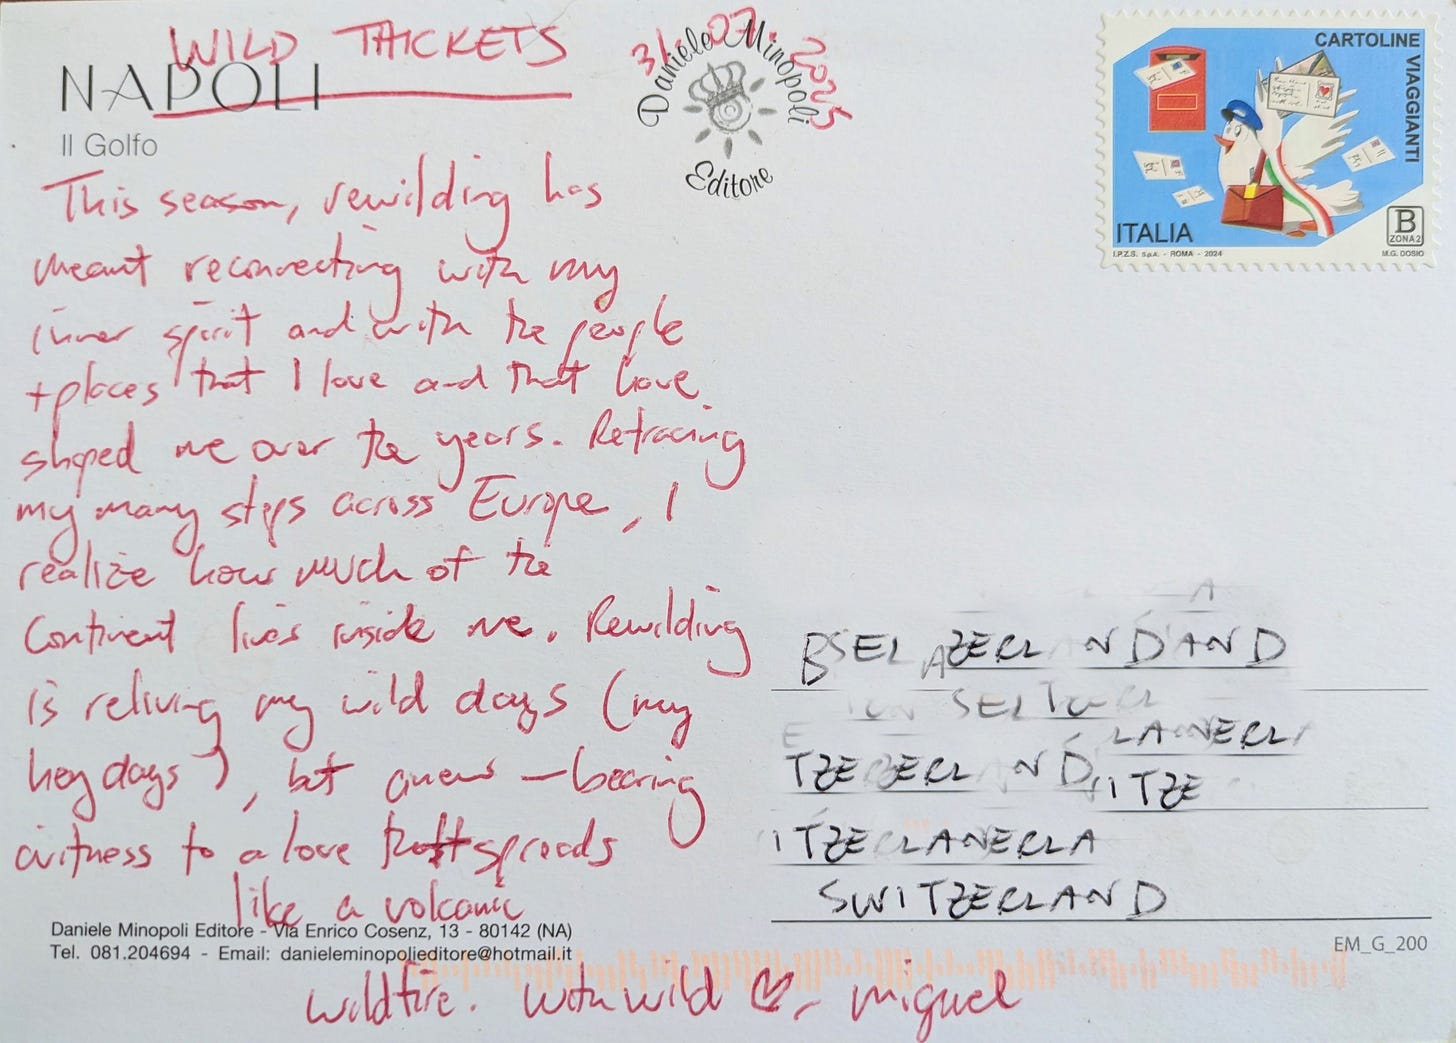 WILD THICKETS
31.07.2025
NAPOLI
Il Golfo
Daniele Minopoli
Editore
CARTOLINE VIAGGIANTI
ITALIA
B
ZONA 2
I.P.Z.S. S.p.A. - ROMA - 2024
M.G. DOSIO
This season, rewilding has
meant reconnecting with my
inner spirit and with the people
+places that I love and that have
shaped me over the years. Retracing
my many steps across Europe, I
realize how much of the
continent lives inside me. Rewilding
is reliving my wild days (my
heydays), but anew – bearing
witness to a love that spreads
like a volcanic
wildfire. With wild ♡, miguel
Daniele Minopoli Editore - Via Enrico Cosenz, 13 - 80142 (NA)
Tel. 081.204694 - Email: danieleminopolieditore@hotmail.it
SWITZERLAND
EM_G_200